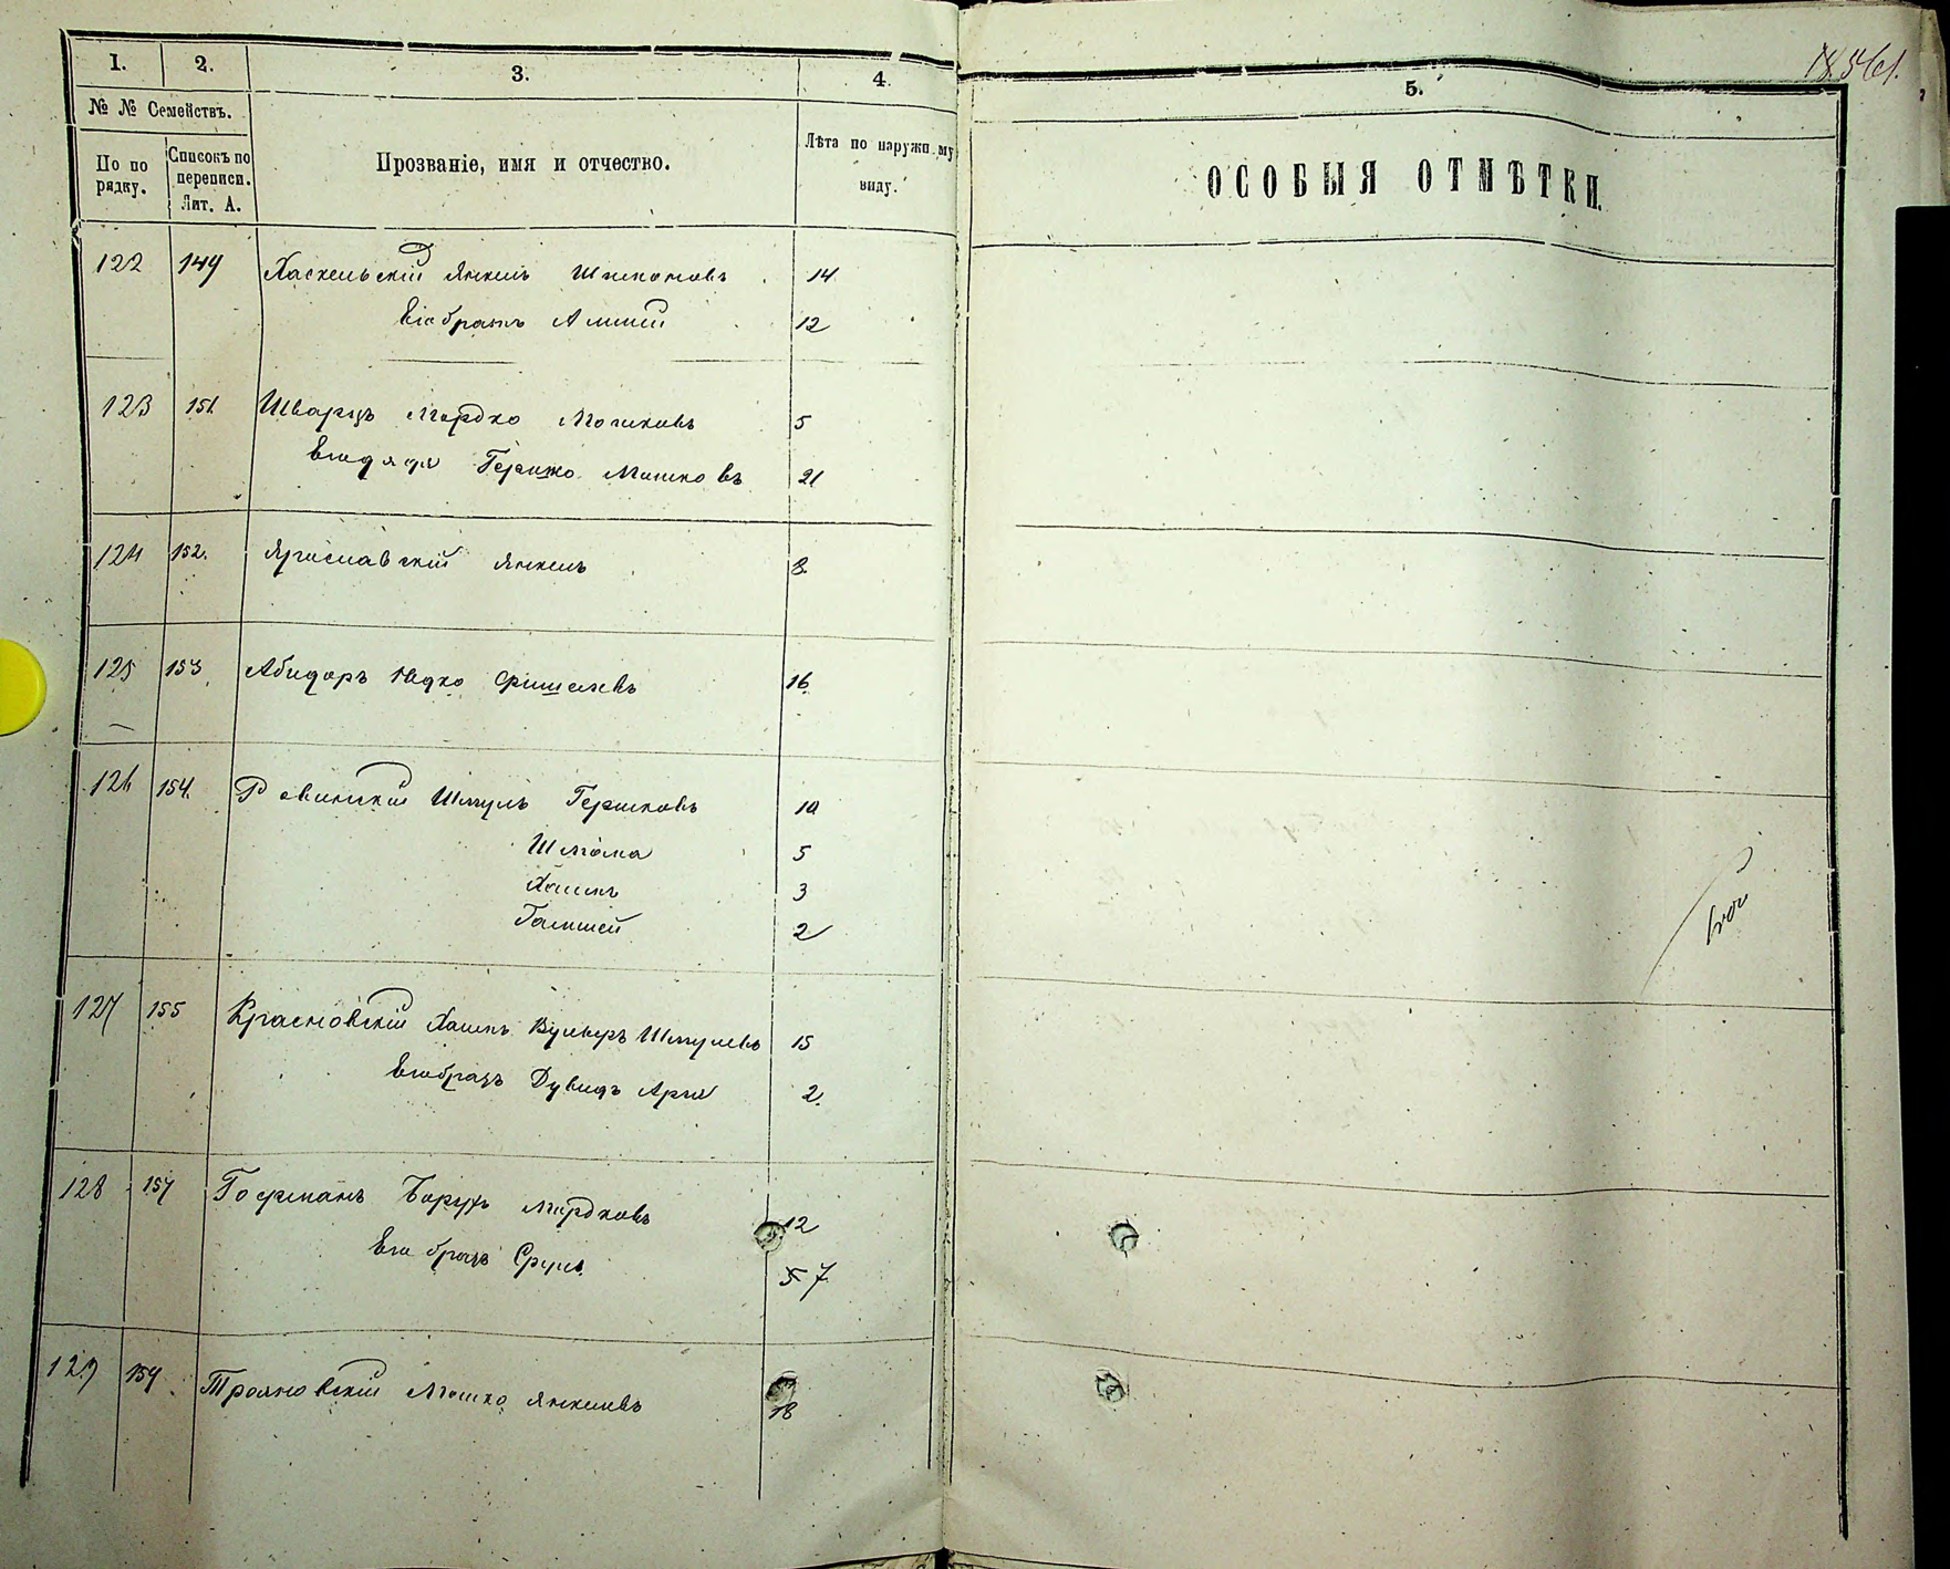 1.
2.
3.
4.
5.
№ № Семействъ.
По по рядку.
Списокъ по переписи. Лит. А.
Прозваніе, имя и отчество.
Лѣта по наружн му виду.
ОСОБЫЯ ОТМѢТКИ.
122 149 Хаскельскій Янкель 14
Его братъ 12
123 151 Шварцъ Мордко Мошковъ 5
Его дядя Гершко Мошковъ 21
124 152. Ярославскій Янкель 8.
125 153 Абидоръ Юдко Фишелевъ 16
126 154. Ровинскій Шмуль Гершковъ 10
Шлема 5
Хаимъ 3
2
127 155 Красновскій Хаимъ Вульфъ Шмулевъ 15
Его братъ Дувидъ Арія 2.
128 157 Гофманъ Борухъ Мордковъ 12
Его братъ Сруль 5 7
129 159 Трояновскій Мошко Янкелевъ 18